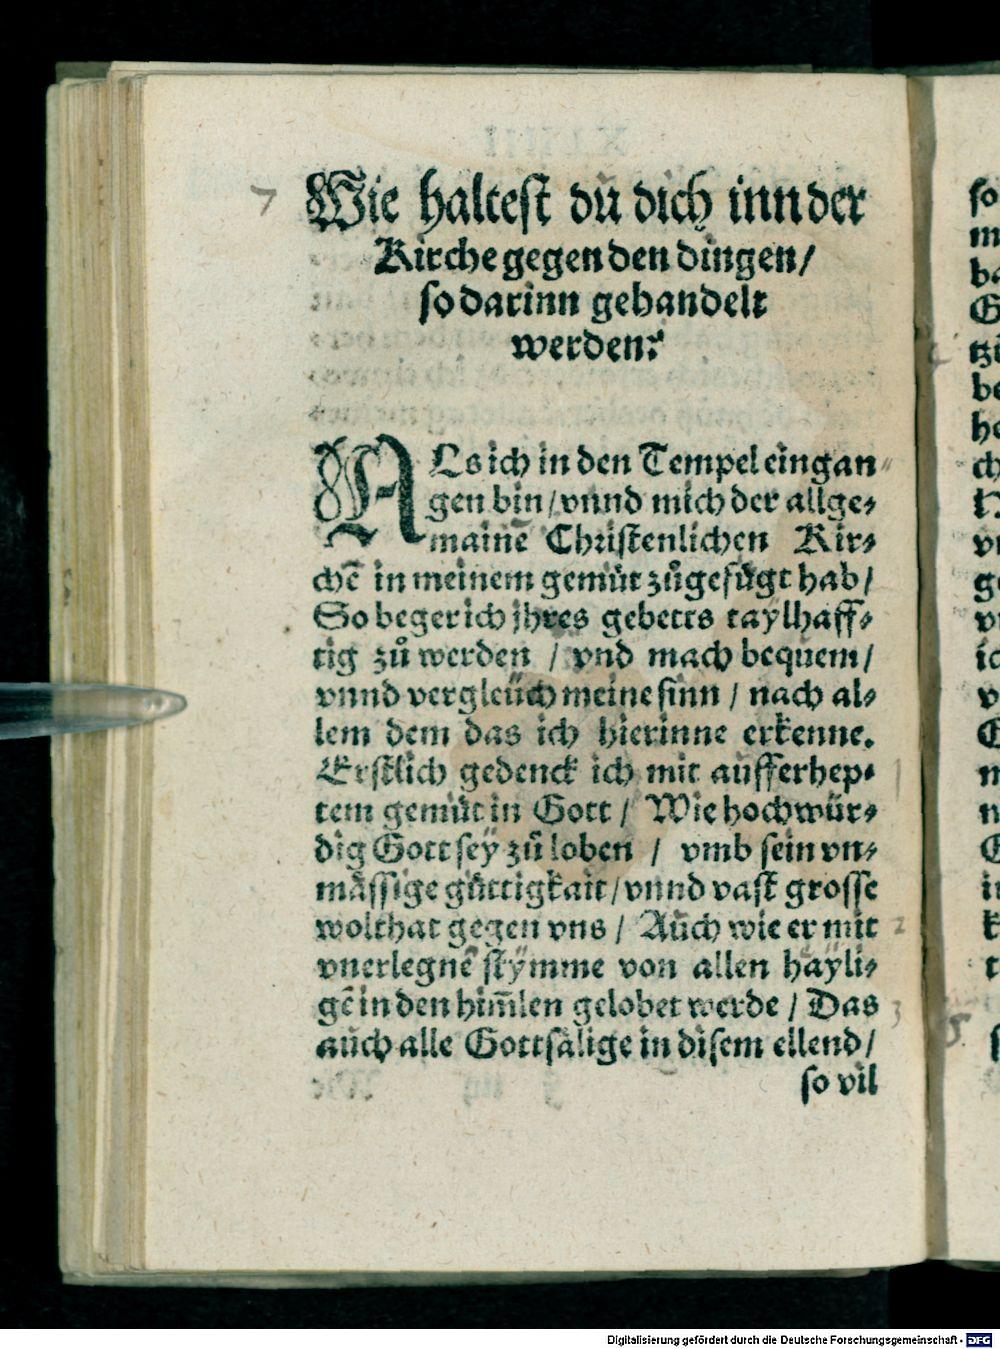 7 Wie haltest dů dich inn der
Kirche gegen den dingen/
so darinn gehandelt
werden?
ALs ich in den Tempel eingan⸗
gen bin/ vnnd mich der allge⸗
mainē Christenlichen Kir⸗
chē in meinem gemüt zůgefügt hab/
So beger ich jhres gebetts taÿlhaff⸗
tig zů werden / vnd mach bequem/
vnnd vergleüch meine sinn / nach al⸗
lem dem das ich hierinne erkenne.
Erstlich gedenck ich mit aufferhep⸗
tem gemüt in Gott / Wie hochwür⸗
dig Gott seÿ zů loben / vmb sein vn⸗
mässige güttigkait/ vnnd vast grosse
wolthat gegen vns / Auch wie er mit
vnerlegnē stÿmme von allen haÿli⸗
gē in den him̄len gelobet werde / Das
auch alle Gottsälige in disem ellend/
so vil
Digitalisierung gefördert durch die Deutsche Forschungsgemeinschaft - DFG